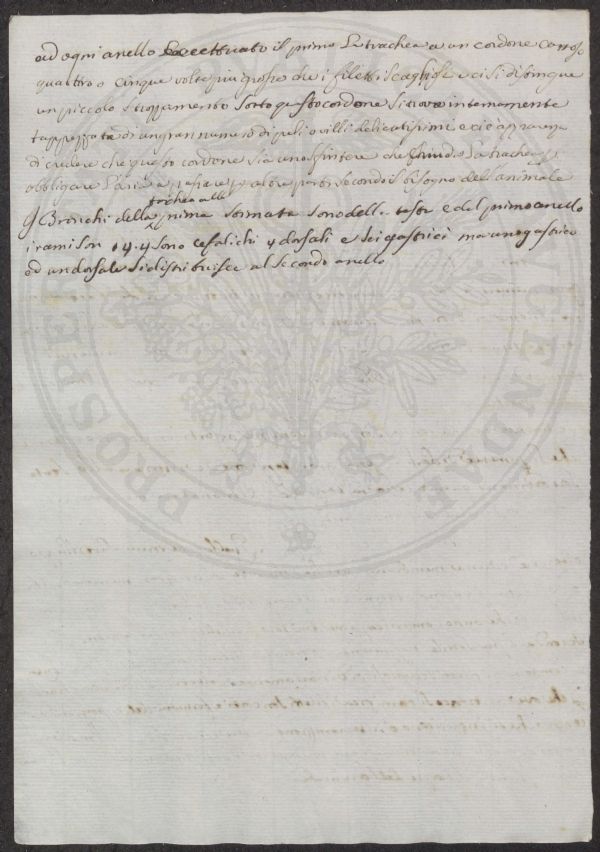 ad ogni anello eccettuato il primo La trachea a un cordone
quattro o cinque volte piu grosso che i filetti Scagliosi e ci si distingue
un piccolo strozzamento sotto questo cordone si trova internamente
tappezzata di un gran numero di peli o villi delicatissimi e ci è apparenza
di credere che questo cordone sia uno sfintere che chiude La trachea p
obbligare L'aria a passare p altre parti secondo il bisogno dell'animale
trachea alle
G Bronchi della prima formata sono della testa e del primo anello
i rami son 14 4 sono cefalichi 4 dorsali e sei gastrici ma un gastrico
ed un dorsale si distribuisce al secondo anello
PROSPE
UGENDAE